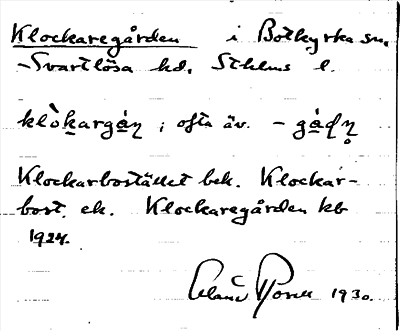 Klockaregården i Botkyrka sn.
Svartlösa hd. Sthlms l.
klòkargáṇ ; ofta äv. - gáḍṇ̥
Klockarbostället bek. Klockar-
bost. ek. Klockaregården kb
1924.
1930.